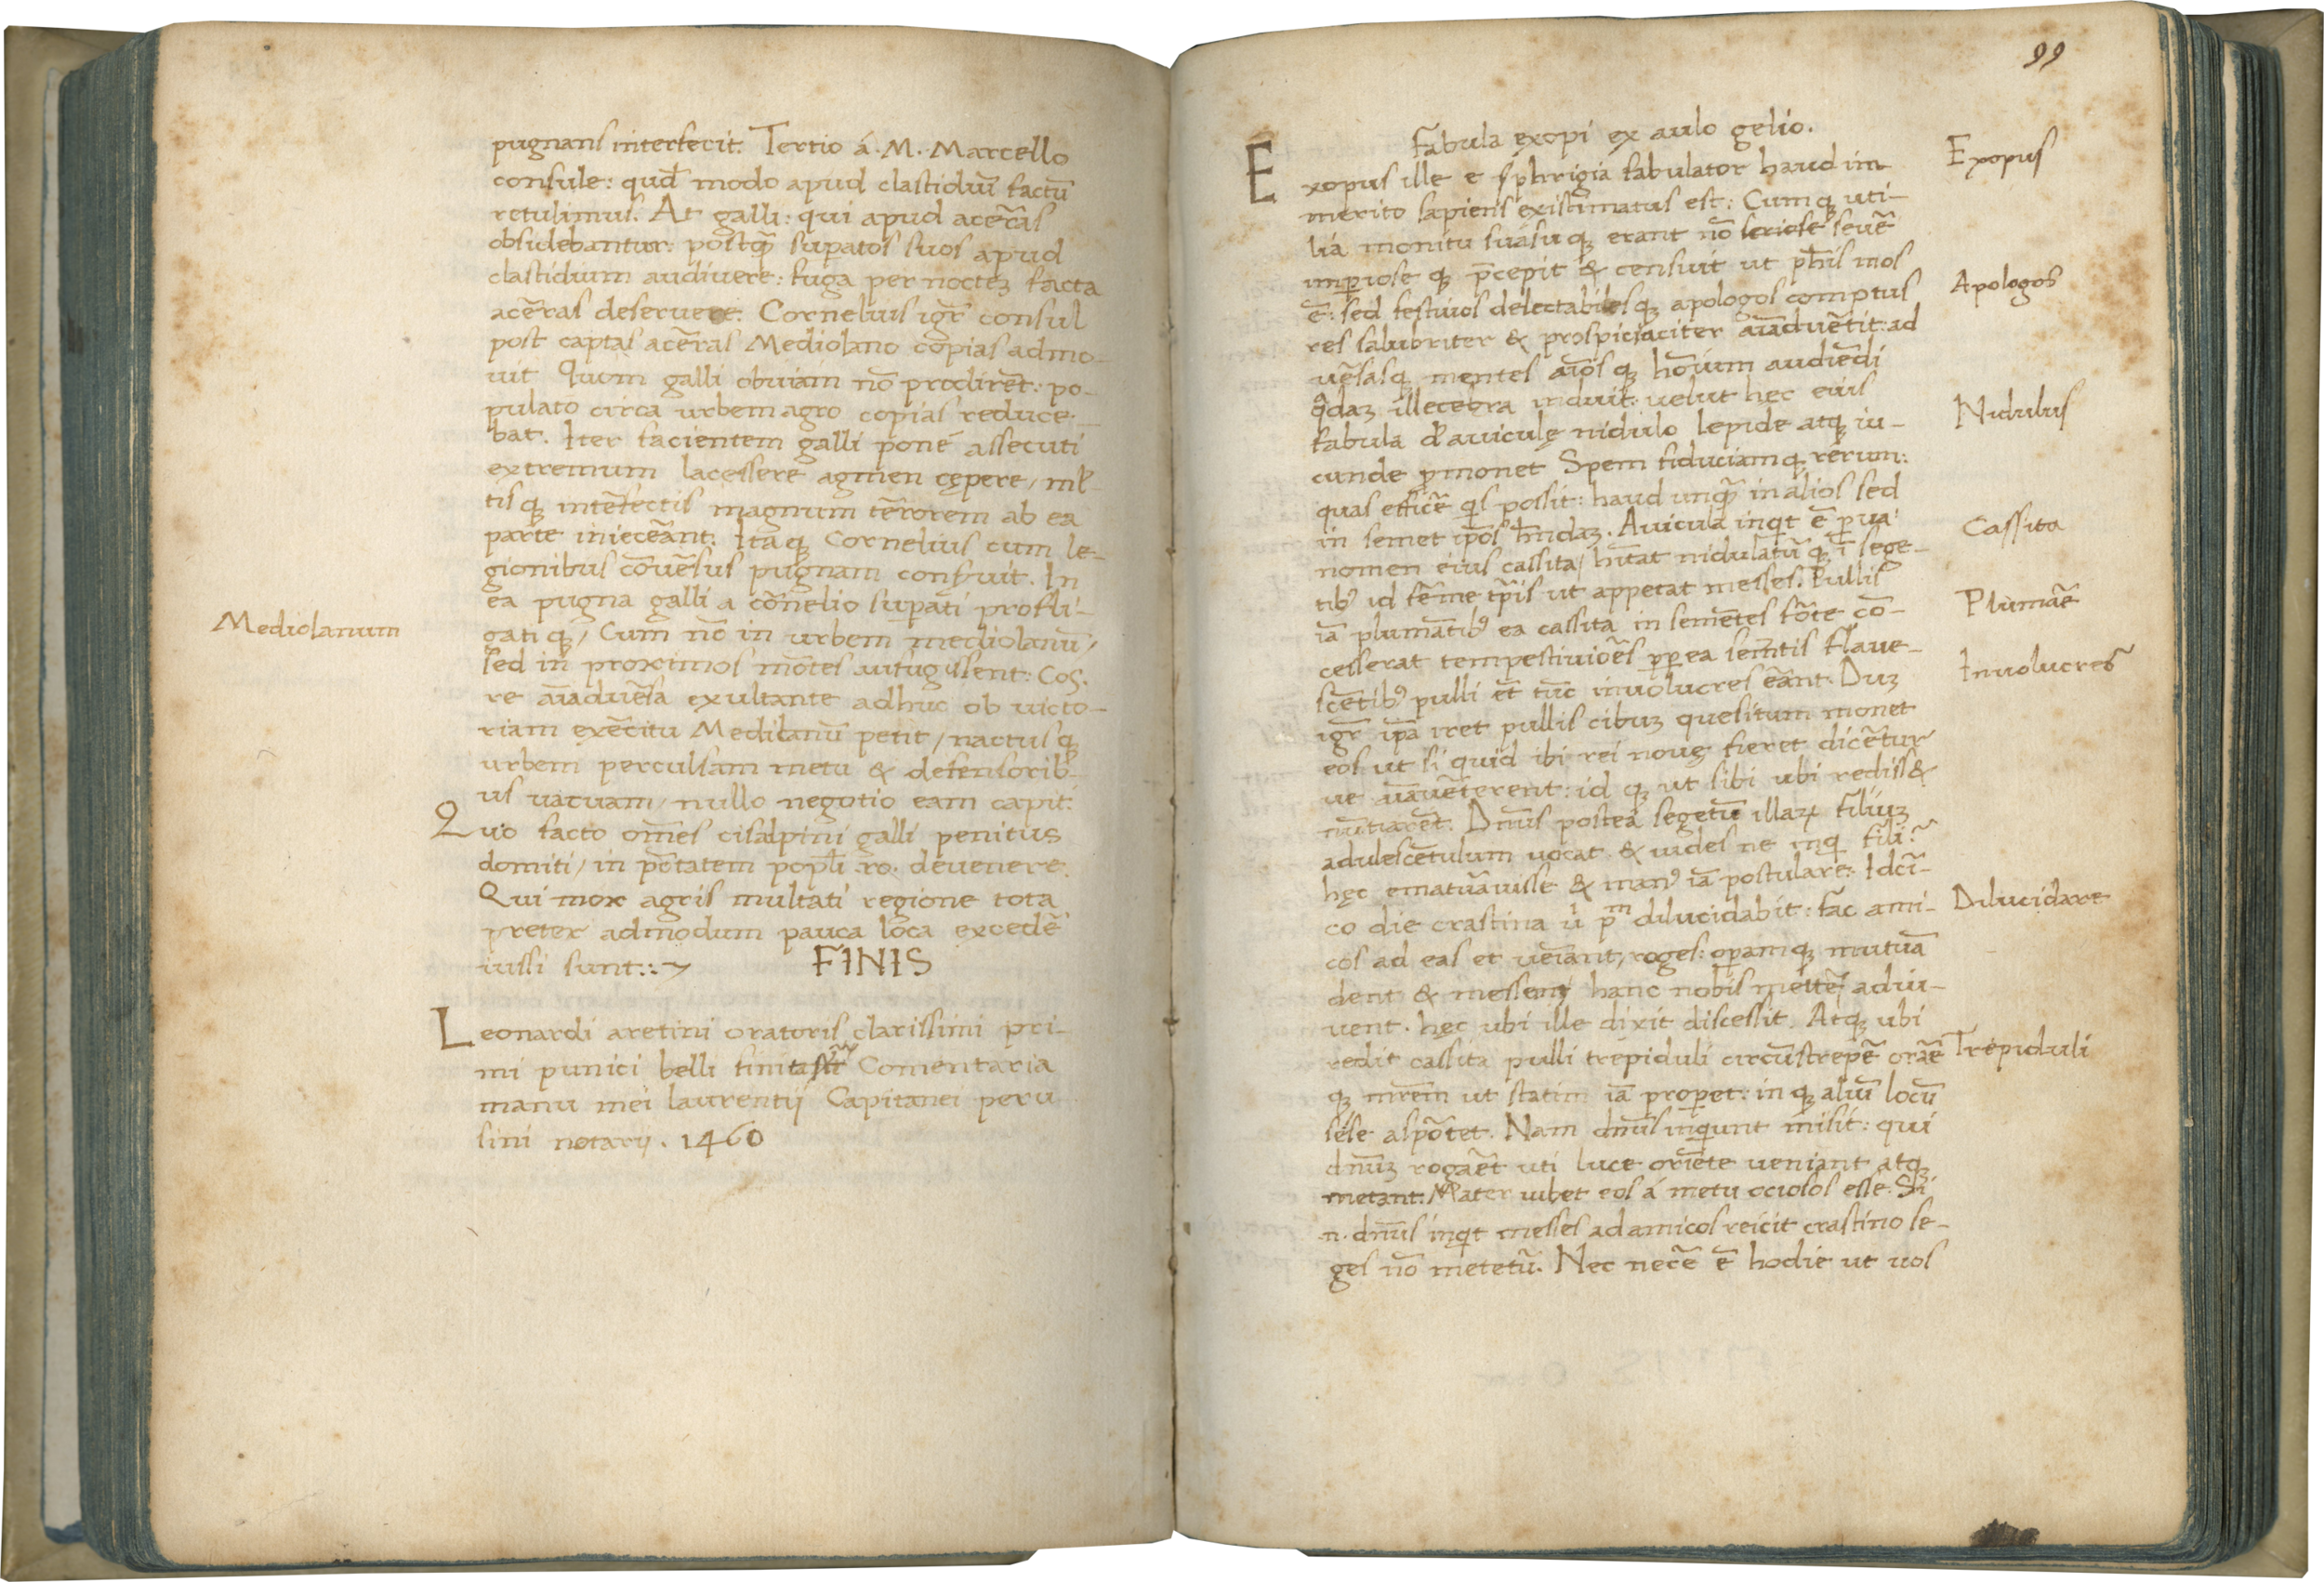 pugnans interfecit. Tertio á .M. Marcello
consule: quđ modo apud clastidiuȝ factū
retulimus. At galli: qui apud acēras
obsidebantur: postq̄ȝ supatos suos apud
clastidium audivere: fuga per nocteȝ facta
acēras deseruere. Cornelius igr̄ consul
post captas acēras Mediolano copias admo-
uit Quom galli obuiam nō prodirēt: po-
pulato circa urbem agro copias reduce-
bat. Iter facientem galli poné assecuti
extremum lacessere agmen cępere, mił-
tisqȝ intēfectis magnum tērorem ab ea
parte iniecēant. Itaqȝ Cornelius cum le-
gionibus cōuēsus pugnam conseruit. In
ea pugna galli a cōnelio supati profli-
gatiqȝ, Cum nō in urbem mediolanū,
Mediolanum
sed in proximos mōtes aufugissent: Cos.
re aīaduēsa exultante adhuc ob victo-
riam exēcitu Mediłanū petit, nactusqȝ
urbem perculsam metu & defensorib-
us uacuam, nullo negotio eam capit:
Quo facto om̄es cisalpini galli penitus
domiti, in p̄tatem popłi .ro. devenere.
Qui mox agris multati regione tota
preter admodum pauca loca excedē
iussi sunt:: ⁊ FINIS
Leonardi aretini oratoris clarissimi pri-
mi punici belli finita Comentaria
manu mei laurentij Capitanei peru
sini notarij. 1460
99
Fabula exopi ex aulo gelio.
Exopus ille e sphrigia fabulator haud im
Exopus
merito sapiens existimatus est: Cumqȝ uti-
lia monitu suasuqȝ erant nō seriose seuē
imperioseqȝ p̄cepit & censuit ut ph̄is mos
ē: sed festiuos delectabilesqȝ apologos comptus
Apologos
res salubriter & prospiciaciter aīaduētit: ad
uēsasqȝ mentes aīosqȝ hoīum audiēdi
q̄daȝ illecebra induit: uelut hęc eius
fabula đ auiculę nidulo lepide atqȝ iu-
Nidulus
cunde p̄monet Spem fiduciamqȝ rerum:
quas efficē qis possit: haud unq̄ȝ in alios sed
in semet ip̄os h̄ndaȝ. Auicula inqt ē parua
nomen eius cassita, hītat nidulatūqȝ ī sege-
Cassita
tibꝰ id fēme tp̄is ut appetat messes. Pullis
iā plumātibꝰ ea cassita in semētes fōte cō-
Plumāe
cesserat tempestiuiōes ppea semētis flaue-
scētibꝰ pulli et tūc inuolucres eānt. Duȝ
Inuolucres
igr̄ ip̄a iret pullis cibuȝ quesitum monet
eos ut si quid ibi rei nouę fieret dicētur
ue aīaueterent: idqȝ ut sibi ubi rediss&
nūtiarēt. Dn̄us postea segetū illaꝝ filiuȝ
adulescētulum uocat & uides ne inqi fili?
hęc ematuāuisse & manꝰ iā postulare: Idcī-
co die crastina u pm dilucidabit: fac ami-
Dilucidare
cos ad eas et ueīant, roges: opamqȝ mutuā
dent & messem hanc nobis mettē adiu-
uent. hęc ubi ille dixit discessit. Atqȝ ubi
redit cassita pulli trepiduli circūstrepē orāe
Trepiduli
qȝ mr̄em ut statim iā properet: inqȝ aliū locū
sese aspōtet. Nam dn̄us inqiunt misit: qui
dn̄uȝ rogaēt uti luce oriēte ueniant atqȝ
metant. Mater iubet eos á metu ociosos esse. Si
.n. dn̄us inqt messes ad amicos reicit crastino se-
ges nō metetū. Nec necē ē hodie ut uos